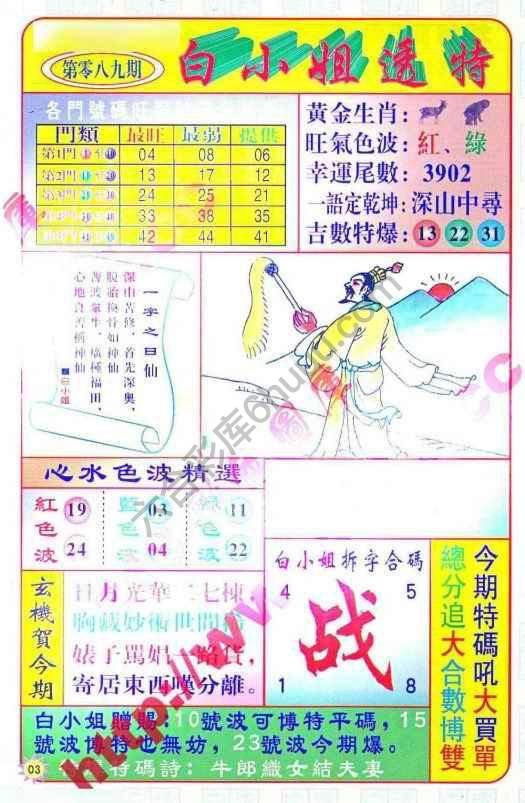 第零八九期
白小姐透特
各門號碼旺
門類 最旺 最弱 提供
第1門 04 08 06
第2門 13 17 12
第3門 24 25 21
33 38 35
42 44 41
黃金生肖:
旺氣色波:紅、綠
幸運尾數: 3902
一語定乾坤:深山中尋
吉數特爆: 13 22 31
一字之曰仙
深山苦修,首先深奧,
脫胎換骨如神仙
普渡眾生,廣種福田,
心地良善稱神仙
白小姐
心水色波精選
紅色波 19 24
藍色波 03 04
綠色波 11 22
玄機賀今期
日月光華二七棟
胸藏妙術世間稀
婊子罵娼一路貨,
寄居東西嘆分離。
白小姐拆字合碼
4 5
战
1 8
今期特碼吼大買單
總分追大合數博雙
白小姐贈賜:10號波可博特平碼,15
號波博特也無妨,23號波今期爆。
特碼詩:牛郎織女結夫妻
03
六合彩库6huku.com
http://www.